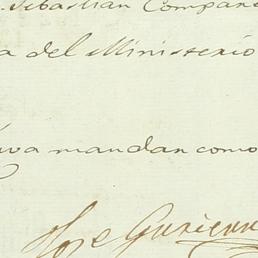 Sebastian Compañ
a del Ministerio
iva mandan como
Jose Gutierr